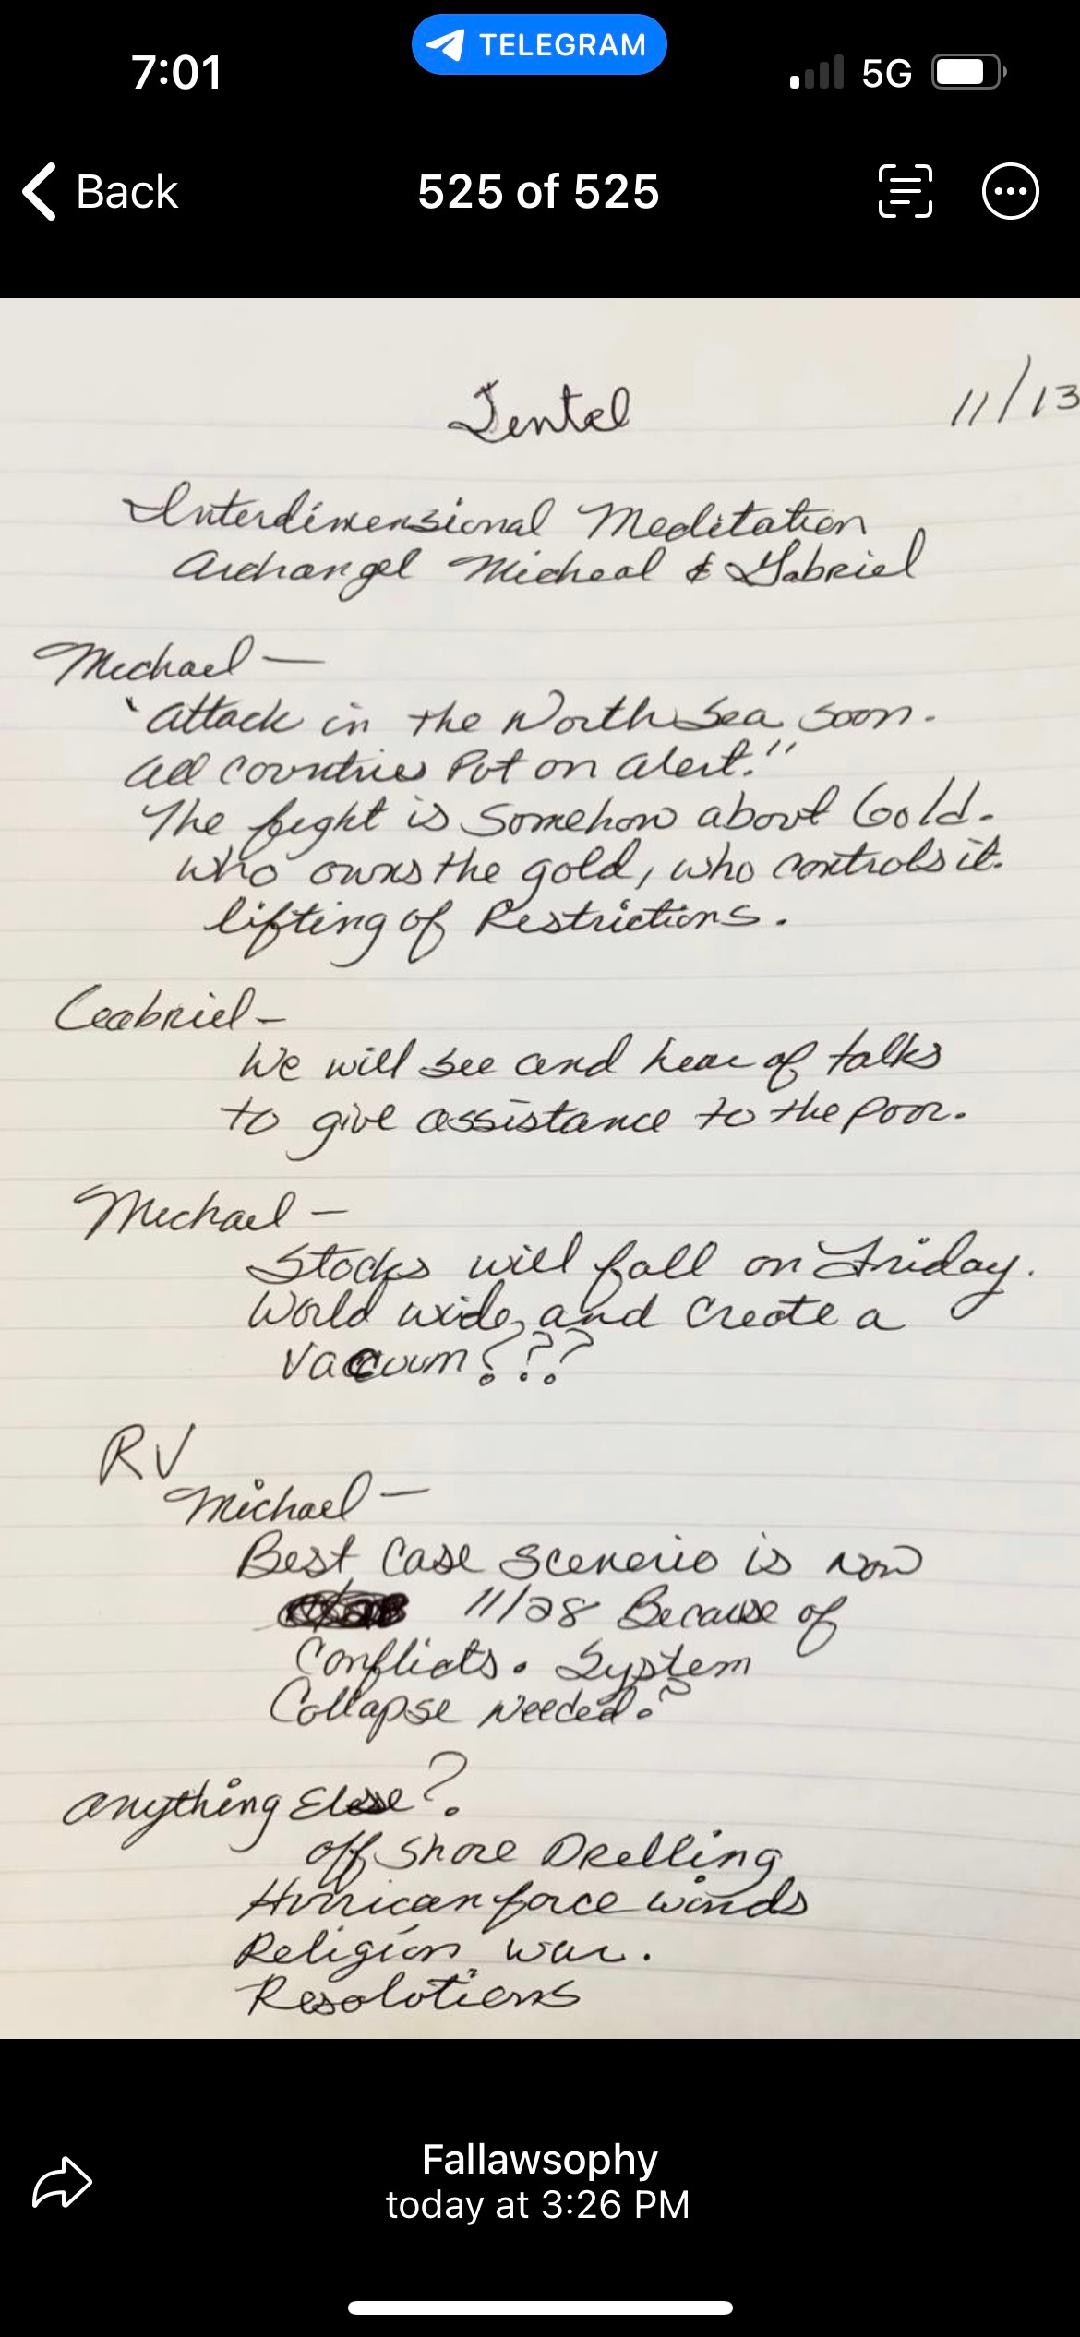 7:01
TELEGRAM
5G
Back
525 of 525
11/13
Interdimensional Meditation
Archangel Micheal & Gabriel
Michael —
"Attack in the North Sea soon.
All Countries Put on alert."
The fight is Somehow about Gold.
who owns the gold, who controls it.
lifting of Restrictions.
Gabriel -
We will see and hear of talks
to give assistance to the poor.
Michael -
Stocks will fall on Friday.
World wide, and Create a
Vaccuum???
RV
Michael —
Best Case Scenerio is now
11/28 Because of
Conflicts. System
Collapse Needed?
Anything Else?
Off Shore Drelling
Hurrican force winds
Religion war.
Resolotions
Fallawsophy
today at 3:26 PM